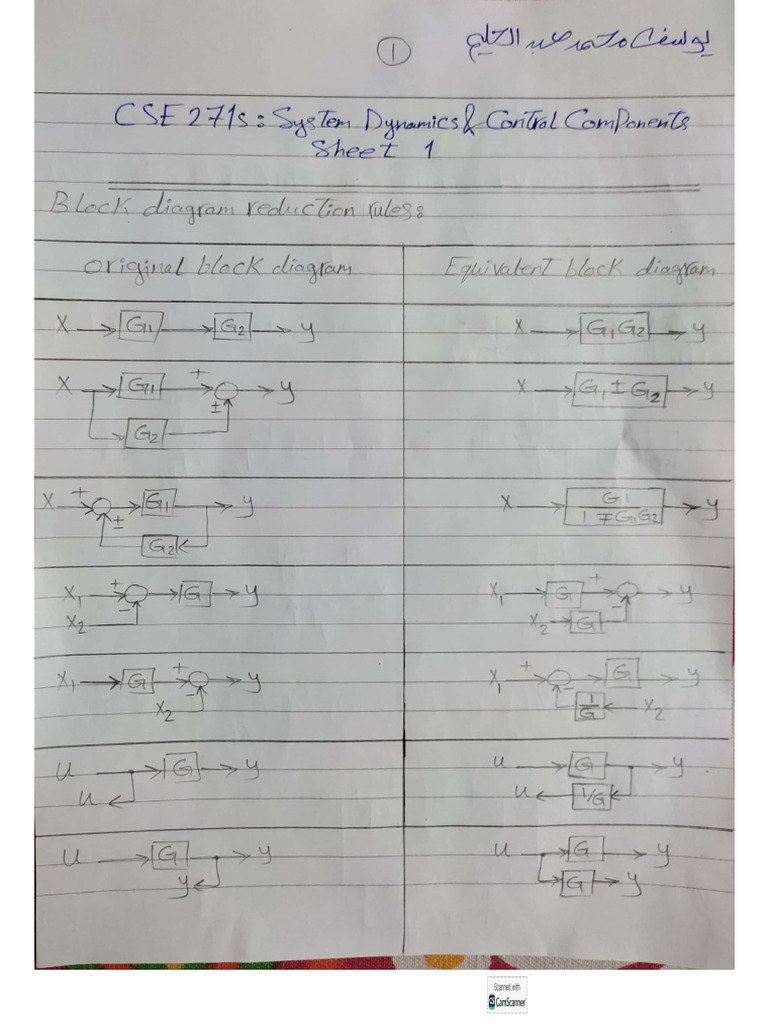 1
يوسف محمد عبد الحليم
CSE 271s: System Dynamics & Control Components
Sheet 1
Block diagram reduction rules:
original block diagram Equivalent block diagram
X G1 G2 y X G1G2 y
X G1 + y X G1 ± G2 y
±
G2
X + G1 y X G1 y
± 1 ∓ G1G2
G2
X1 + G y X1 G + y
− −
X2 X2 G
X1 G + y X1 + G y
− −
X2 1/G X2
u G y u G y
u u 1/G
u G y u G y
y G y
Scanned with
CS CamScanner